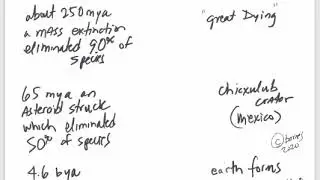 about 250 mya
a mass extinction
eliminated 90% of
species
"great Dying"
65 mya an
Asteroid struck
which eliminated
50% of species
chicxulub
crater
(mexico)
© barnes
2020
4.6 bya
earth forms